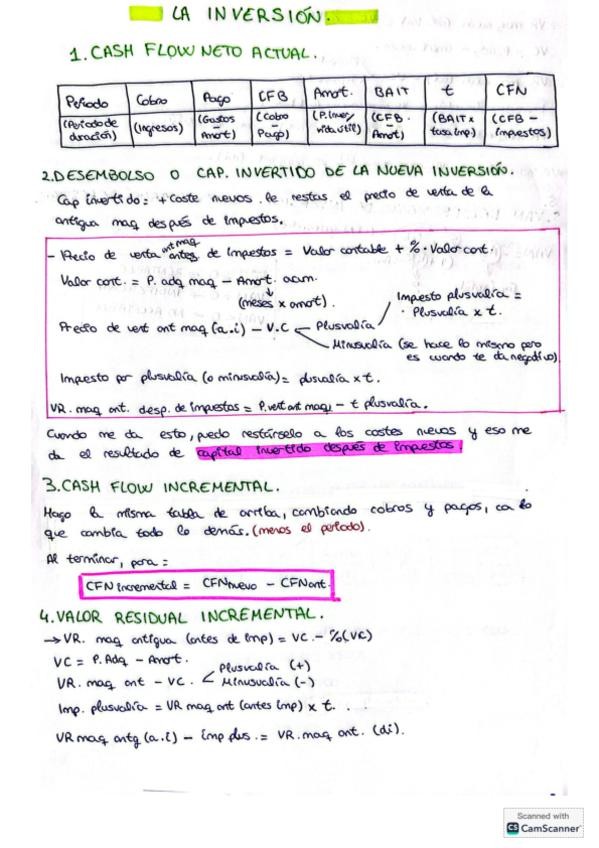 LA INVERSIÓN.
1. CASH FLOW NETO ACTUAL.
Periodo Cobro Pago CFB Amort. BAIT t CFN
(Periodo de duración) (Ingresos) (Gastos - Amort) (Cobro - Pago) (P. Inver/ vida util) (CFB - Amort) (BAIT x tasa imp) (CFB - impuestos)
2. DESEMBOLSO O CAP. INVERTIDO DE LA NUEVA INVERSIÓN.
Cap invertido = + coste nuevos. le restas el precio de venta de la
antigua maq después de impuestos.
- Precio de venta ant maq antes de impuestos = Valor contable + % · Valor cont.
Valor cont. = P. adq maq - Amort. acum.
(meses x amort).
Impesto plusvalía =
· Plusvalía x t.
Precio de vent ant maq (a.i) - V.C Plusvalía
Minusvalía (se hace lo mismo pero
es cuando te da negativo)
Impuesto por plusvalía (o minusvalía) = plusvalía x t.
VR. maq ant. desp. de impuestos = P.vent ant maq - t plusvalía.
Cuando me da esto, puedo restárselo a los costes nuevos y eso me
da el resultado de capital invertido después de impuestos.
3. CASH FLOW INCREMENTAL.
Hago la misma tabla de arriba, cambiando cobros y pagos, con lo
que cambia todo lo demás. (menos el período).
Al terminar, para =
CFN incremental = CFN nuevo - CFN ant.
4. VALOR RESIDUAL INCREMENTAL.
→ VR. maq antigua (antes de imp) = VC. - % (VC)
VC = P. Adq - Amort.
VR. maq ant - VC. Plusvalía (+)
Minusvalía (-)
Imp. plusvalía = VR maq ant (antes imp) x t. . .
VR maq antg (a.i) - imp plus. = VR. maq ant. (di).
Scanned with
CS CamScanner